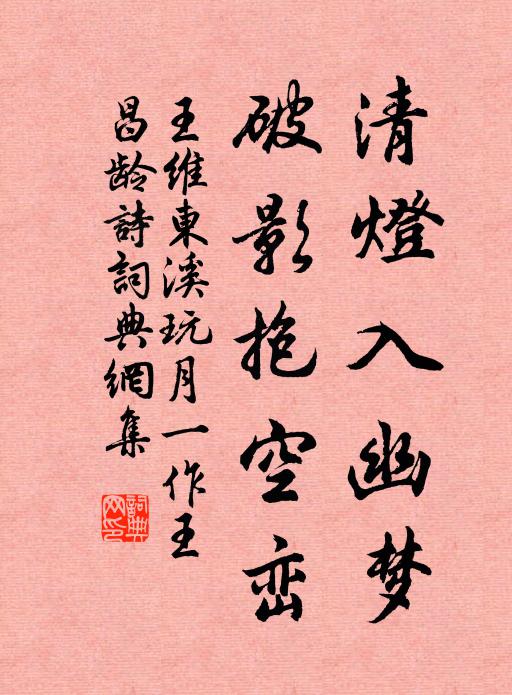 清燈入幽梦
破影抱空峦
王维東溪玩月一作王
昌龄詩詞典網集
詞典
网印